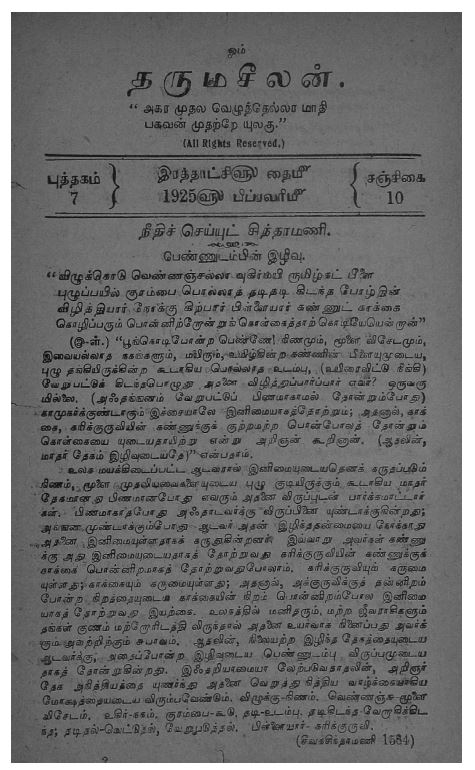 ஓம்
தருமசீலன்.
“ அகர முதல வெழுத்தெல்லா மாதி
பகவன் முதற்றே யுலகு.”
(All Rights Reserved.)
புத்தகம் 7
இரத்தாட்சிஹு தைமீ
1925ஹு பிப்ரவரிமீ
சஞ்சிகை 10
நீதிச் செய்யுட் சித்தாமணி.
பெண்ணுடம்பின் இழிவு.
“விழுக்கொடு வெண்ணஞ்சல்லா வுகிர்மயி ருமிழ்கட் பீளை
புழுப்பயில் குரம்பை பொல்லாத தடிதடி கிடந்த போழ்தின்
விழித்தியார் நோக்கு கிற்பார் பிள்ளையார் கண்ணுட் காக்கை
கொழிப்பரும் பொன்னிற்றோன்றுங்கொள்கைத்தாற்கொடியேயென்றான்”
(இ-ள்.) “பூங்கொடிபோன்ற பெண்ணே! நிணமும், மூளை விசேடமும்,
இவையல்லாத நகங்களும், மயிரும், உமிழ்கின்ற கண்ணின் பீளையுமுடைய,
புழு தங்கியிருக்கின்ற கூடாகிய பொல்லாத உடம்பு, (உயிரைவிட்டு நீங்கி)
வேறுபட்டுக் கிடந்தபொழுது அதனை விழித்துப்பார்ப்பார் எவர்? ஒருவரு
மில்லை. (அஃதங்ஙனம் வேறுபட்டுப் பிணமாகாமல் தோன்றும்போது)
காமுகர்க்குண்டாகும் இச்சையாலே இனிமையாகத்தோற்றும்; அதனால், காக்
கை, கரிக்குருவியின் கண்ணுக்குக் குற்றமற்ற பொன்போலத் தோன்றும்
கொள்கையை யுடையதாயிற்று என்று அறிஞன் கூறினான். (ஆதலின்,
மாதர் தேகம் இழிவுடையதே)” என்பதாம்.
உலக மயக்கிடைப்பட்ட ஆடவரால் இனிமையுடையதெனக் கருதப்படும்
நிணம், மூளை முதலியவைகளையுடைய புழு குடியிருக்கும் கூடாகிய மாதர்
தேகமானது பிணமானபோது எவரும் அதனை விருப்புடன் பார்க்கமாட்டார்
கள். பிணமாகாதபோது அஃதாடவர்க்கு விருப்பினை யுண்டாக்குகின்றது;
அவ்வாறுமுண்டாக்கும்போது ஆடவர் அதன் இழிந்ததன்மையை நோக்காது
அதனை இனிமையுள்ளதாகக் கருதுகின்றனர். இவ்வாறு அவர்கள் கண்ணு
க்கு அது இனிமையுடையதாகத் தோற்றுவது கரிக்குருவியின் கண்ணுக்குக்
காக்கை பொன்னிறமாகத் தோற்றுவதுபோலாம். கரிக்குருவியும் கருமை
யுள்ளது; காக்கையும் கருமையுள்ளது; அதனால், அக்குருவிக்குத் தன்னிறம்
போன்ற நிறத்தையுடைய காக்கையின் நிறம் பொன்னிறம்போல இனிமை
யாகத் தோற்றுவது இயற்கை. உலகத்தில் மனிதரும், மற்ற ஜீவராசிகளும்
தங்கள் குணம் மற்றோரிடத்தி லிருந்தால் அதனை உயர்வாக நினைப்பது அவர்க்
கும் அவற்றிற்கும் சுபாவம். ஆதலின், நிலையற்ற இழிந்த தேகத்தையுடைய
ஆடவர்க்கு, அதைப்போன்ற இழிவுடைய பெண்ணுடம்பு விருப்பமுடைய
தாகத் தோன்றுகின்றது. இஃதறியாமையா லேற்படுவதாதலின், அறிஞர்
தேக அநித்தியத்தை யுணர்ந்து அதனை வெறுத்து நித்திய வாழ்க்கையாகிய
மோக்ஷத்தையடைய விரும்பவேண்டும். விழுக்கு-நிணம். வெண்ணஞ்சு-மூளை
விசேடம். உகிர்-நகம். குரம்பை-கூடு. தடி-உடம்பு. தடிகிடந்த-வேறுகிக்கிட
ந்த; தடிதல்-வெட்டுதல், வேறுபடுத்தல். பிள்ளையார்- கரிக்குருவி.
(சீவகசிந்தாமணி 1584)